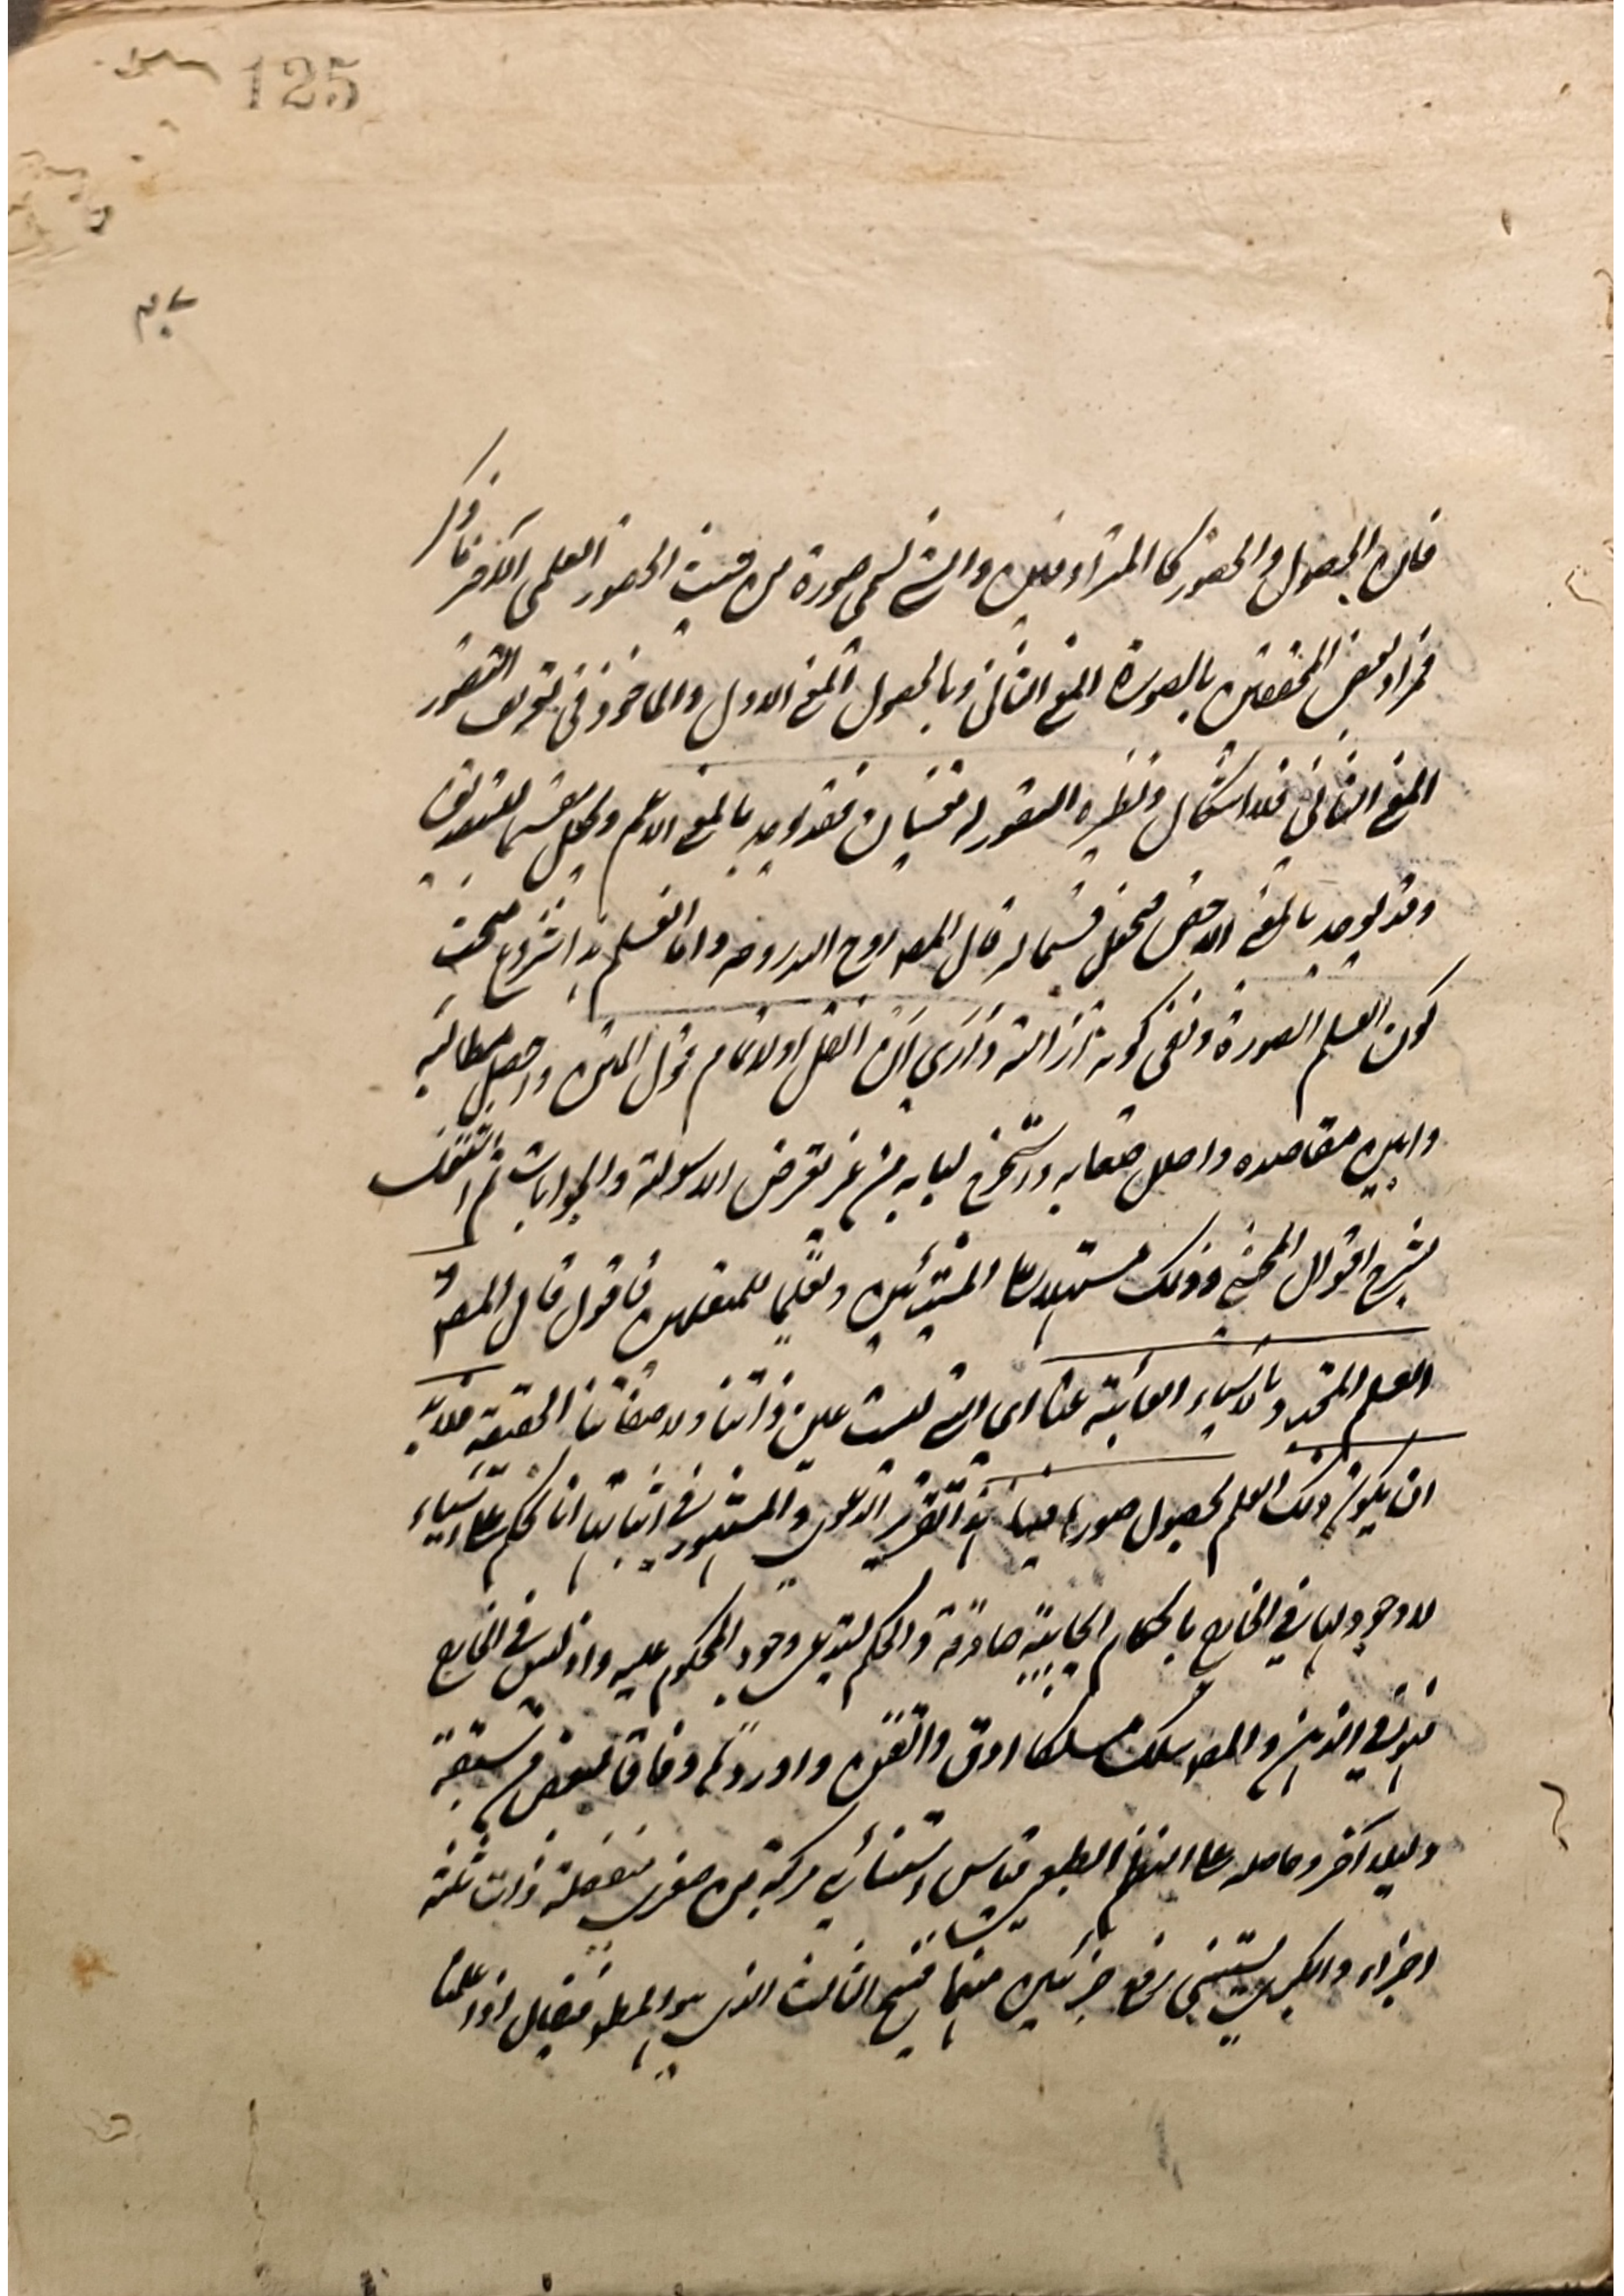 125
فان الحصول والحضور كالمترادفين والشئ يسمى صورة من حيث الحضور العلمى
فمراد بعض المحققين بالصورة المعنى الثانى وبالحصول المعنى الاول والماخوذ فى تعريف التصور
المعنى الثانى فلا اشكال ونظيره التصور له معنيان فقد يوجد بالمعنى الاعم ويجعل مقسما للتصديق
وقد يوجد بالمعنى الاخص فيجعل قسيما له قال المصـ روح الله روحه واما العلم هذا شروع مبحث
كون العلم الصورة ونفى كونه ازالة وارى ان انقل اولا تمام قول المتن واحصل مطالبه
وابين مقاصده واحلل صعابه واستخرج لبابه من غير تعرض الاسولة والجوابات ثم
بشرح اقوال المحشى وذلك تسهيلا على المبتدئين وتعليما للمتعلمين فاقول قال المصـ
العلم المتجدد بالاشياء الغائبة عنا اى التى ليست عين ذواتنا ولا صفاتنا الحقيقية فلا بد
ان يكون ذلك العلم بحصول صورها فينا هذا تقرير الدعوى والمشهور فى اثباتها انا نحكم على اشياء
لا وجود لها فى الخارج باحكام ايجابية صادقة والحكم يستدعى وجود المحكوم عليه واذ ليس فى الخارج
فهو فى الذهن والمصـ سلك مسلكا ادق واتقن واورد وفاقا لبعض من سبقه
دليلا آخر وحاصله على النظم الطبعى قياس استثنائى مركبة من صغرى منفصلة ذات ثلثة
اجزاء والكبرى يستثنى رفع جزئين منها فينتج الثالث الذى هو المطلـ فيقال اذا علمنا